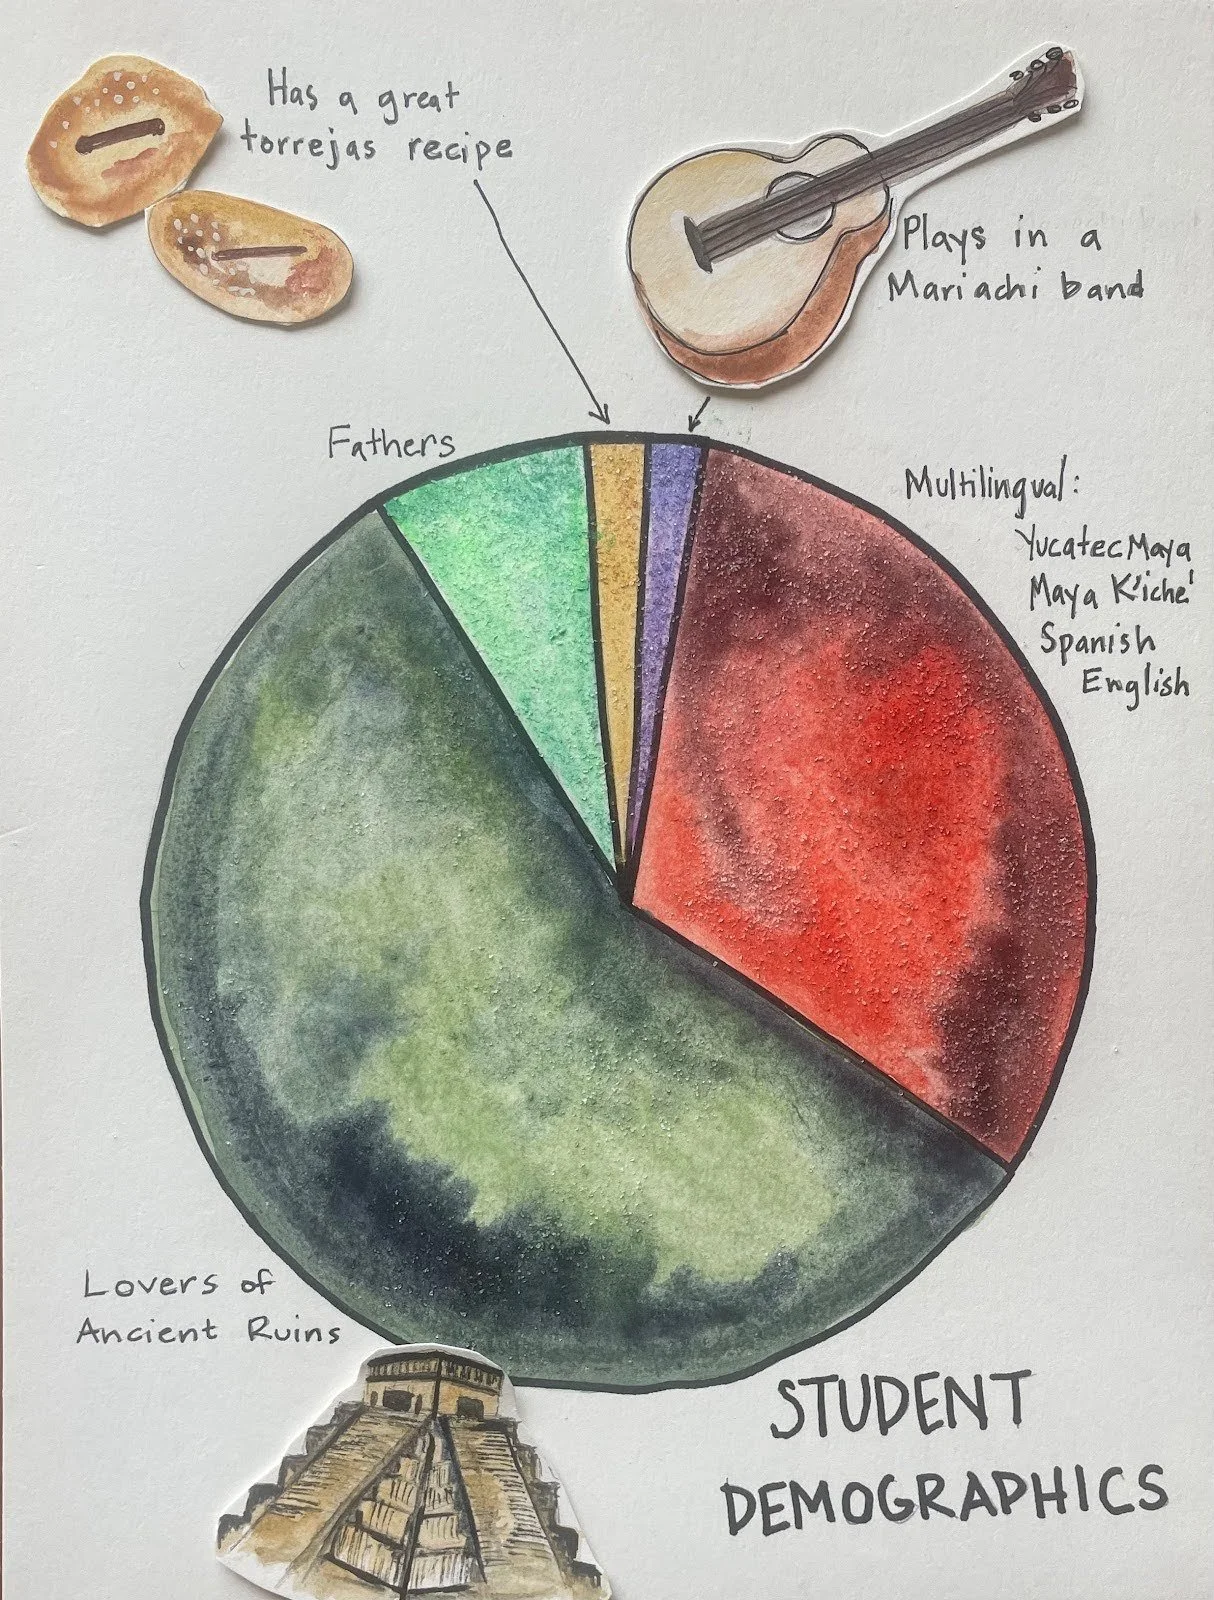 Has a great
torrejas recipe
Plays in a
Mariachi band
Fathers
Multilingual:
Yucatec Maya
Maya K'iche'
Spanish
English
Lovers of
Ancient Ruins
STUDENT
DEMOGRAPHICS